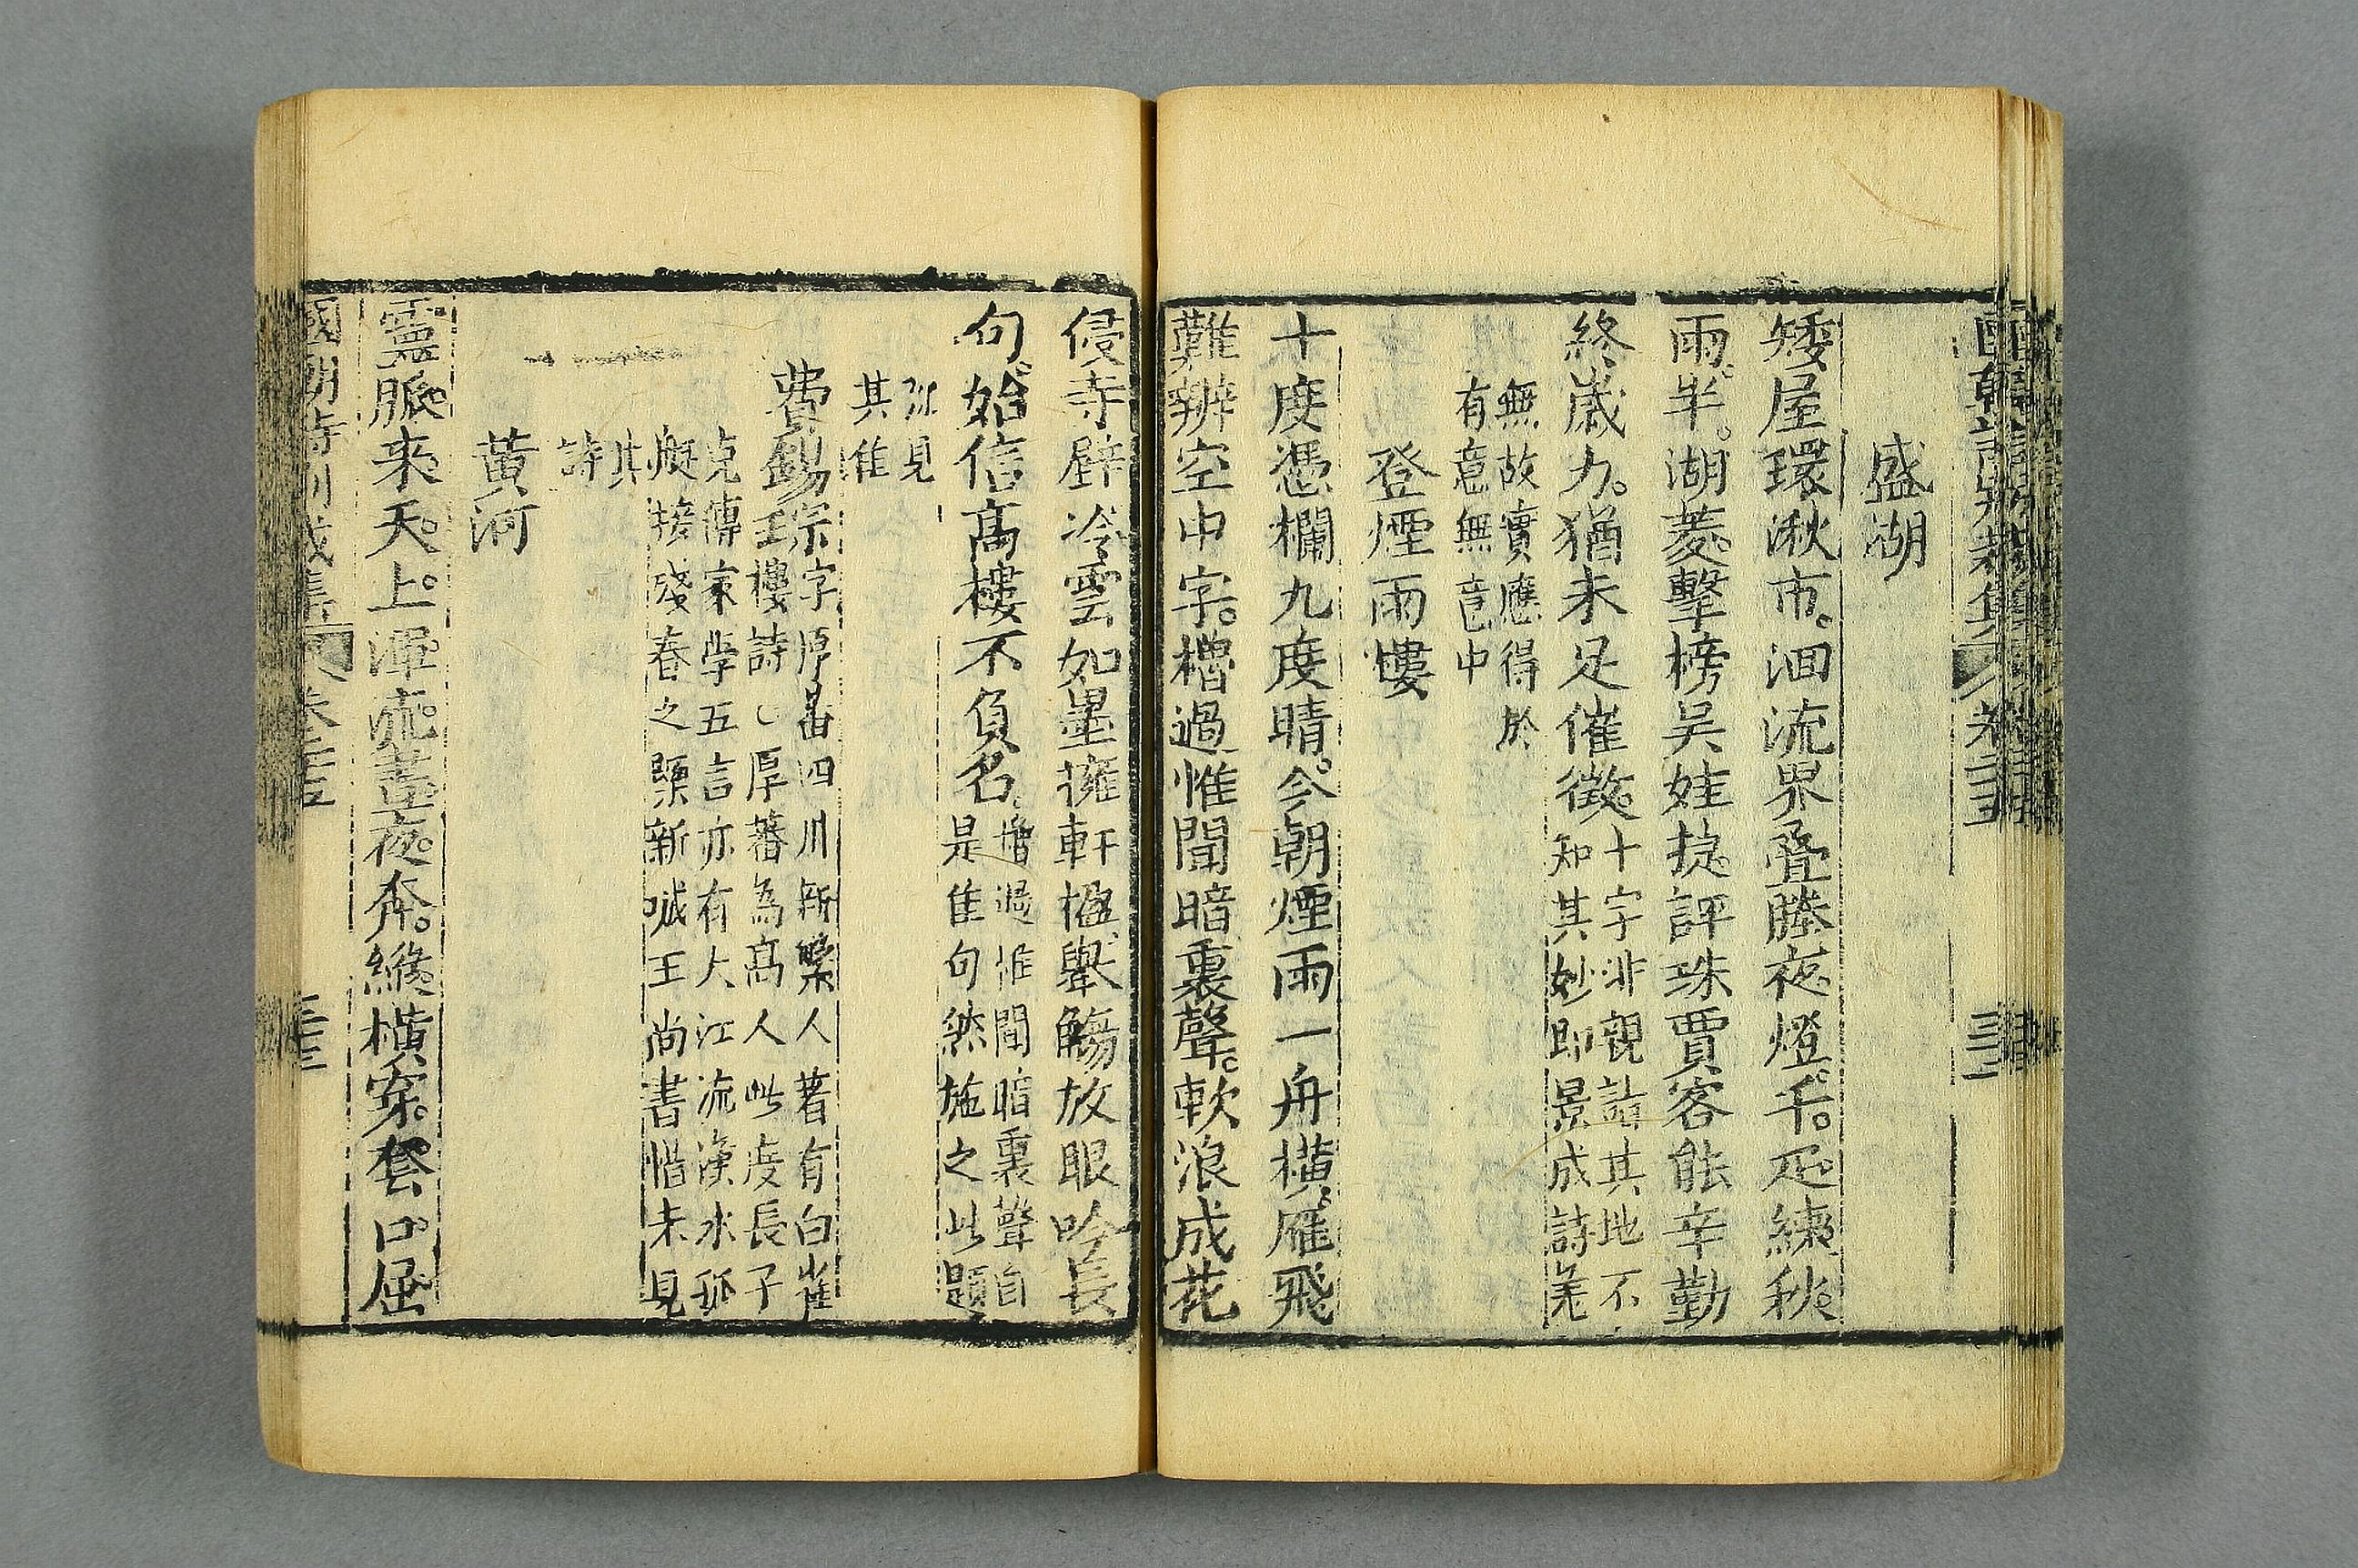 盛湖
矮屋環湫市。洄流界疊塍。夜燈。千。疋。練。秋。
雨。半。湖菱。擊榜吳娃捷。評珠賈客能。辛勤
終歲力。猶未足催徵。
十字非親詣其地不
知其妙即景成詩羌
無故實應得於
有意無意中
登煙雨樓
十度憑欄九度晴。今朝煙雨一舟橫。雁飛
難辨空中字。櫓過惟聞暗裏聲。軟浪成花
侵寺壁冷雲如墨擁軒楹。舉觴放眼吟長
句。始信高樓不負名。
櫓過惟聞暗裏聲自
是佳句然施之此題
彌見
其佳
費錫琮
字厚蕃四川新繁人著有白雀
樓詩○厚蕃為高人此度長子
克傳家學五言亦有大江流漢水孤
艇接殘春之槩新城王尚書惜未見
其
詩
黃河
靈脈。来。天。上。渾。流。晝。夜。奔。縱橫穿。套口。屈
國朝詩別裁集 卷二十五 三十三